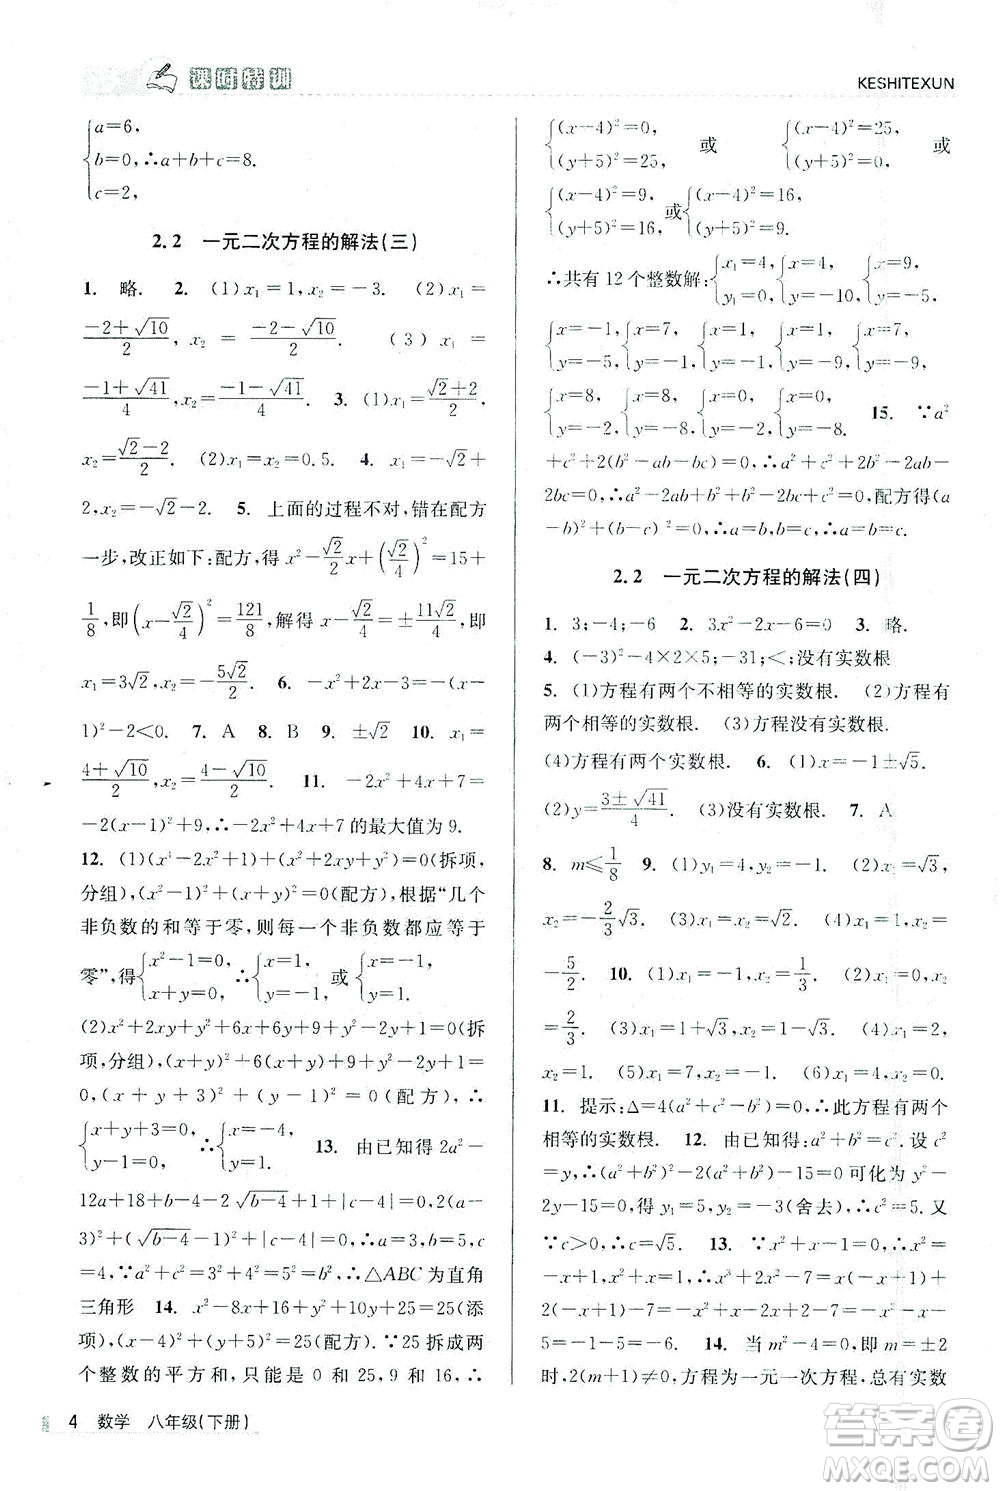 课时特训
KESHITEXUN
{a=6,
b=0,∴a+b+c=8.
c=2,
2.2 一元二次方程的解法(三)
1. 略. 2. (1)x₁=1,x₂=-3. (2)x₁=
(-2+√10)/2, x₂=(-2-√10)/2. (3)x₁=
(-1+√41)/4,x₂=(-1-√41)/4. 3. (1)x₁=(√2+2)/2,
x₂=(√2-2)/2. (2)x₁=x₂=0.5. 4. x₁=-√2+
2,x₂=-√2-2. 5. 上面的过程不对,错在配方
一步,改正如下:配方,得 x²-(√2/2)x+(√2/4)²=15+
1/8,即(x-√2/4)²=121/8,解得 x-√2/4=±11√2/4,
x₁=3√2,x₂=-5√2/2. 6. -x²+2x-3=-(x-
1)²-2<0. 7. A 8. B 9. ±√2 10. x₁=
(4+√10)/2,x₂=(4-√10)/2. 11. -2x²+4x+7=
-2(x-1)²+9,∴-2x²+4x+7的最大值为9.
12. (1)(x⁴-2x²+1)+(x²+2xy+y²)=0(拆项,
分组),(x²-1)²+(x+y)²=0(配方),根据“几个
非负数的和等于零,则每一个非负数都应等于
零”,得{x²-1=0, x+y=0,∴{x=1, y=-1 或{x=-1, y=1.
(2)x²+2xy+y²+6x+6y+9+x²+8x+16=0(拆
项,分组),(x+y)²+6(x+y)+9+(x+4)²=
0,(x+y+3)²+(x+4)²=0(配方),∴
{x+y+3=0, x+4=0,∴{x=-4, y=1. 13. 由已知得2a²-
12a+18+b-4-2√(b-4)+1+|c-4|=0,2(a-
3)²+(√(b-4)-1)²+|c-4|=0,∴a=3,b=5,c=
4,∵a²+c²=b²,∴△ABC为直角
三角形 14. x²-8x+16+y²+10y+25=25(添
项),(x-4)²+(y+5)²=25(配方).∵25拆成两
个整数的平方和,只能是0和25,9和16,∴
{(x-4)²=0, (y+5)²=25, 或 {(x-4)²=25, (y+5)²=0, 或
{(x-4)²=9, (y+5)²=16 或{(x-4)²=16, (y+5)²=9.
∴共有12个整数解:{x₁=4, y₁=0,{x=4, y=-10,{x=9, y=-5,
{x=-1, y=-5,{x=1, y=-1,{x=1, y=-9,{x=7, y=-1,{x=7, y=-9,
{x=8, y=-2,{x=8, y=-8,{x=0, y=-2,{x=0, y=-8. 15. ∵a²
+c²+2(b²-ab-bc)=0,∴a²+c²+2b²-2ab-
2bc=0,a²-2ab+b²+b²-2bc+c²=0,配方得(a
-b)²+(b-c)²=0,∴a=b,b=c,∴a=b=c.
2.2 一元二次方程的解法(四)
1. 3;-4;-6 2. 3x²-2x-6=0 3. 略.
4. (-3)²-4×2×5;-31;<;没有实数根
5. (1)方程有两个不相等的实数根. (2)方程有
两个相等的实数根. (3)方程没有实数根.
(4)方程有两个不相等的实数根. 6. (1)x=-1±√5.
(2)y=(3±√41)/4. (3)没有实数根. 7. A
8. m≤1/8 9. (1)y₁=4,y₂=-1. (2)x₁=√3,
x₂=-(2/3)√3. (3)x₁=x₂=√2. (4)x₁=1,x₂=
-5/2. 10. (1)x₁=-1,x₂=1/3. (2)x₁=0,x₂
=2/3. (3)x₁=1+√3,x₂=1-√3. (4)x₁=2,
x₂=1. (5)x₁=7,x₂=-1. (6)x₁=4,x₂=0.
11. 提示:Δ=4(a²+c²-b²)=0,∴此方程有两个
相等的实数根. 12. 由已知得:a²+b²=c². 设c²
=y,∴(a²+b²)²-2(a²+b²)-15=0可化为y²-
2y-15=0,得y₁=5,y₂=-3(舍去),∴c²=5. 又
∵c>0,∴c=√5. 13. ∵x²+x-1=0,∴-x²
-x+1=0,∴-x³-2x²-7=-x(-x+1)-
2(-x+1)-7=-x²+x+2x-2-7=-x²-x
=5=-1-5=-6. 14. 当m²-4=0,即m=±2
时,2(m+1)≠0,方程为一元一次方程,必有实数
4 数学 八年级(下册)
答案圈
MXQE.COM